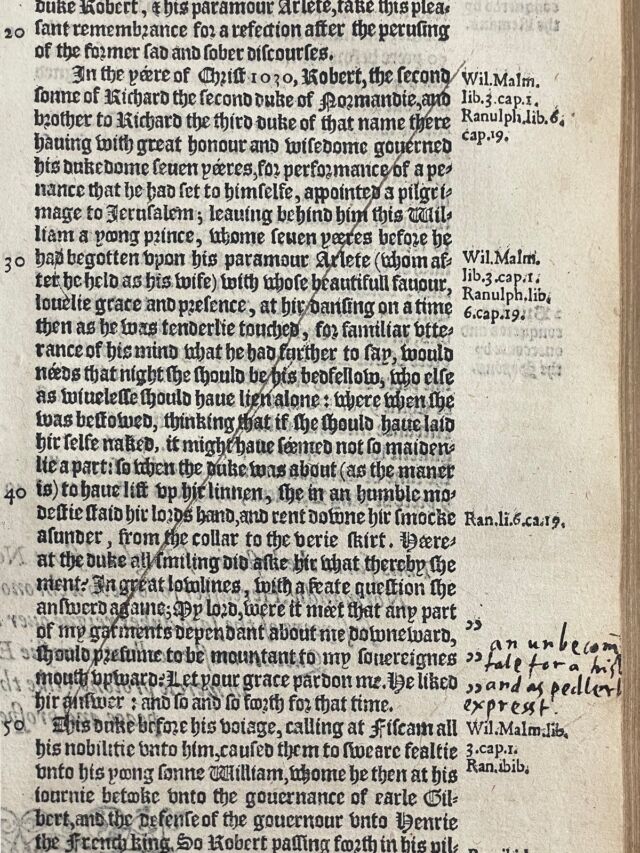 duke Robert, & his paramour Arlete, take this plea-
20 sant remembrance for a refection after the perusing
of the former sad and sober discourses.
In the yéere of Christ 1030, Robert, the second
sonne of Richard the second duke of Normandie, and
brother to Richard the third duke of that name there
hauing with great honour and wisedome gouerned
his dukedome seuen yéeres, for performance of a pe-
nance that he had set to himselfe, appointed a pilgri-
mage to Jerusalem; leauing behind him this Wil-
liam a yoong prince, whome seuen yéeres before he
30 had begotten vpon his paramour Arlete (whom af-
ter he held as his wife) with whose beautifull fauour,
louelie grace and presence, at hir dansing on a time
then as he was tenderlie touched, for familiar vtte-
rance of his mind what he had further to say, would
néeds that night she should be his bedfellow, who else
as wiuelesse should haue lien alone: where when she
was bestowed, thinking that if she should haue laid
hir selfe naked, it might haue séemed not so maiden-
lie a part: so when the duke was about (as the maner
40 is) to haue lift vp hir linnen, she in an humble mo-
destie staid hir lords hand, and rent downe hir smocke
asunder, from the collar to the verie skirt. Héere-
at the duke all smiling did aske hir what thereby she
ment? In great lowlines, with a feate question she
answerd againe; My lord, were it méet that any part
of my garments dependant about me downeward,
should presume to be mountant to my souereignes
mouth vpward? Let your grace pardon me. He liked
hir answer: and so and so foorth for that time.
50 This duke before his voiage, calling at Fiscam all
his nobilitie vnto him, caused them to sweare fealtie
vnto his yoong sonne William, whome he then at his
iournie betooke vnto the gouernance of earle Gil-
bert, and the defense of the gouernour vnto Henrie
the French king. So Robert passing foorth in his pil-
Wil. Malm.
lib.3.cap.1.
Ranulph.lib.6.
cap.19.
Wil. Malm.
lib.3.cap.1.
Ranulph.lib.
6.cap.19.
Ran.li.6.ca.19.
,,
an unbecom
,, tale for a hist
,, and as pedlerl
exprest.
Wil.Malm.lib.
3.cap.1.
Ran.ibib.